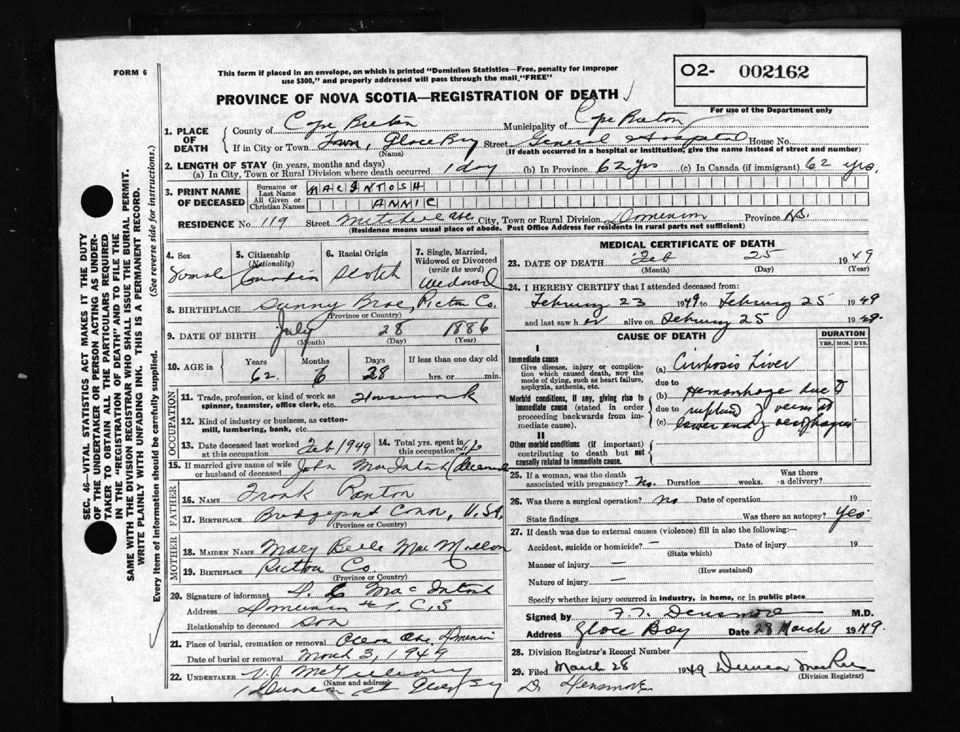 FORM 6
This form if placed in an envelope, on which is printed "Dominion Statistics—Free, penalty for improper
use $300," and properly addressed will pass through the mail "FREE"
O2- 002162
For use of the Department only
PROVINCE OF NOVA SCOTIA—REGISTRATION OF DEATH
1. PLACE OF DEATH
County of Cape Breton Municipality of Cape Breton
If in City or Town Town, Glace Bay Street General Hospital House No.
(Name) (If death occurred in a hospital or institution, give the name instead of street and number)
2. LENGTH OF STAY (in years, months and days)
(a) In City, Town or Rural Division where death occurred 1 day (b) In Province 62 yrs (c) In Canada (if immigrant) 62 yrs.
3. PRINT NAME OF DECEASED
Surname or Last Name MACINTOSH
All Given or Christian Names ANNIE
RESIDENCE No. 119 Street Mitchell ave City, Town or Rural Division Dominion Province N.S.
(Residence means usual place of abode. Post Office Address for residents in rural parts not sufficient)
4. Sex Female
5. Citizenship (Nationality) Canadian
6. Racial Origin Scotch
7. Single, Married, Widowed or Divorced (write the word) Widowed
8. BIRTHPLACE Sunny Brae, Pictou Co.
(Province or Country)
9. DATE OF BIRTH July 28 1886
(Month) (Day) (Year)
10. AGE in Years Months Days If less than one day old
62 6 28 hrs. or min.
OCCUPATION
11. Trade, profession, or kind of work as spinner, teamster, office clerk, etc. Housework
12. Kind of industry or business, as cotton-mill, lumbering, bank, etc.
13. Date deceased last worked at this occupation Feb 1949 14. Total yrs. spent in this occupation
15. If married give name of wife or husband of deceased John MacIntosh (deceased)
FATHER
16. Name Frank Ranton
17. Birthplace Bridgeport Conn, U.S.A.
(Province or Country)
MOTHER
18. Maiden Name Mary Belle MacMillan
19. Birthplace Pictou Co.
(Province or Country)
20. Signature of informant MacIntosh
Address Dominion #1 C.B
Relationship to deceased Son
21. Place of burial, cremation or removal Dominion
Date of burial or removal March 3, 1949
22. UNDERTAKER V.J. McGillivray
(Name and address)
Glace Bay
MEDICAL CERTIFICATE OF DEATH
23. DATE OF DEATH Feb 25 1949
(Month) (Day) (Year)
24. I HEREBY CERTIFY that I attended deceased from:
February 23 1949 to February 25 1949
and last saw her alive on February 25 1949.
CAUSE OF DEATH
DURATION
YRS. MOS. DYS.
I
Immediate cause
Give disease, injury or complication which caused death, not the mode of dying, such as heart failure, asphyxia, asthenia, etc.
(a) Cirrhosis Liver
due to
Morbid conditions, if any, giving rise to immediate cause (stated in order proceeding backwards from immediate cause).
(b) Hemorrhage due to
due to ruptured veins at
(c) lower end of oesophagus
II
Other morbid conditions (if important) contributing to death but not causally related to immediate cause.
25. If a woman, was the death associated with pregnancy? No. Duration weeks. Was there a delivery?
26. Was there a surgical operation? No Date of operation 19
State findings Was there an autopsy? Yes
27. If death was due to external causes (violence) fill in also the following:—
Accident, suicide or homicide? — Date of injury 19
(State which)
Manner of injury —
(How sustained)
Nature of injury —
Specify whether injury occurred in industry, in home, or in public place
Signed by F.T. Densmore M.D.
Address Glace Bay Date 28 March 1949.
28. Division Registrar's Record Number
29. Filed March 28 1949 Duncan MacRae
(Division Registrar)
D. Densmore
SEC. 46—VITAL STATISTICS ACT MAKES IT THE DUTY
OF THE UNDERTAKER OR PERSON ACTING AS UNDER-
TAKER TO OBTAIN ALL THE PARTICULARS REQUIRED
IN THE "REGISTRATION OF DEATH" AND TO FILE THE
SAME WITH THE DIVISION REGISTRAR WHO SHALL ISSUE THE BURIAL PERMIT.
WRITE PLAINLY WITH UNFADING INK. THIS IS A PERMANENT RECORD.
Every item of information should be carefully supplied. (See reverse side for instructions.)